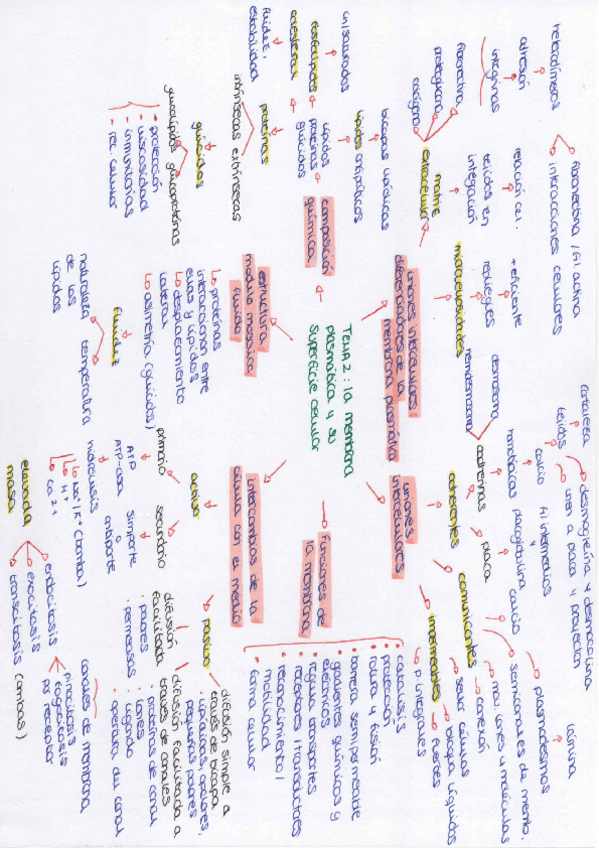 Tema 2: la membrana
plasmática y su
superficie celular
composición
química
lípidos
proteínas
glúcidos
lípidos
bicapas lipídicas
antipáticos
fosfolípidos
insaturados
colesterol
fluidez
estabilidad
proteínas
intrínsecas
extrínsecas
glúcidos
glucolípidos
glucoproteínas
protección
viscosidad
inmunitarias
rec. celular
estructura
modulo mosaico
fluido
proteínas
interaccionan entre
ellas y lípidos
desplazamiento
lateral
asimetría (glúcidos)
fluidez
temperatura
naturaleza
de los
lípidos
uniones intercelulares.
diferenciaciones de la
membrana plasmática
matriz
extracelular
relación cel.
tejidos en
integración
colágeno
proteoglicano
fibronectina
integrinas
adhesión
heterodímeros
fibronectina / fil. actina
interacciones celulares
microvellosidades
repliegues
+ eficiente
uniones
intercelulares
adherentes
cadherinas
desmosoma
hemidesmosoma
placa
homofílicas
calcio
placoglobulina
fil. intermedios
tejidos
desmogleína y desmocolina
unen a placa y proyectan
comunicantes
calcio
plasmodesmos
semicanales de memb.
mol. iones y moléculas
conexón
lámina
impermeables
sellar células
bloquea líquidos
fuertes
p. integrales
funciones de
la membrana
catálisis
protección
rotura y fusión
barrera semipermeable
gradientes químicos y
eléctricos
regula transportes
receptores / transductores
reconocimiento /
motilidad
forma celular
intercambios de la
célula con el medio
activo
primario
ATP
ATP-asa
hidrólisis
Na⁺/K⁺ (bomba)
H⁺
Ca²⁺
secundario
simporte
o
antiporte
pasivo
difusión simple a
través de bicapa
lipídicos, apolares,
pequeñas polares
difusión
facilitada
polares
permeasas
difusión facilitada a
través de canales
proteínas de canal
iones
ligando
apertura del canal
elevada
masa
endocitosis
exocitosis
transcitosis (ambas)
pinocitosis
fagocitosis
por receptor